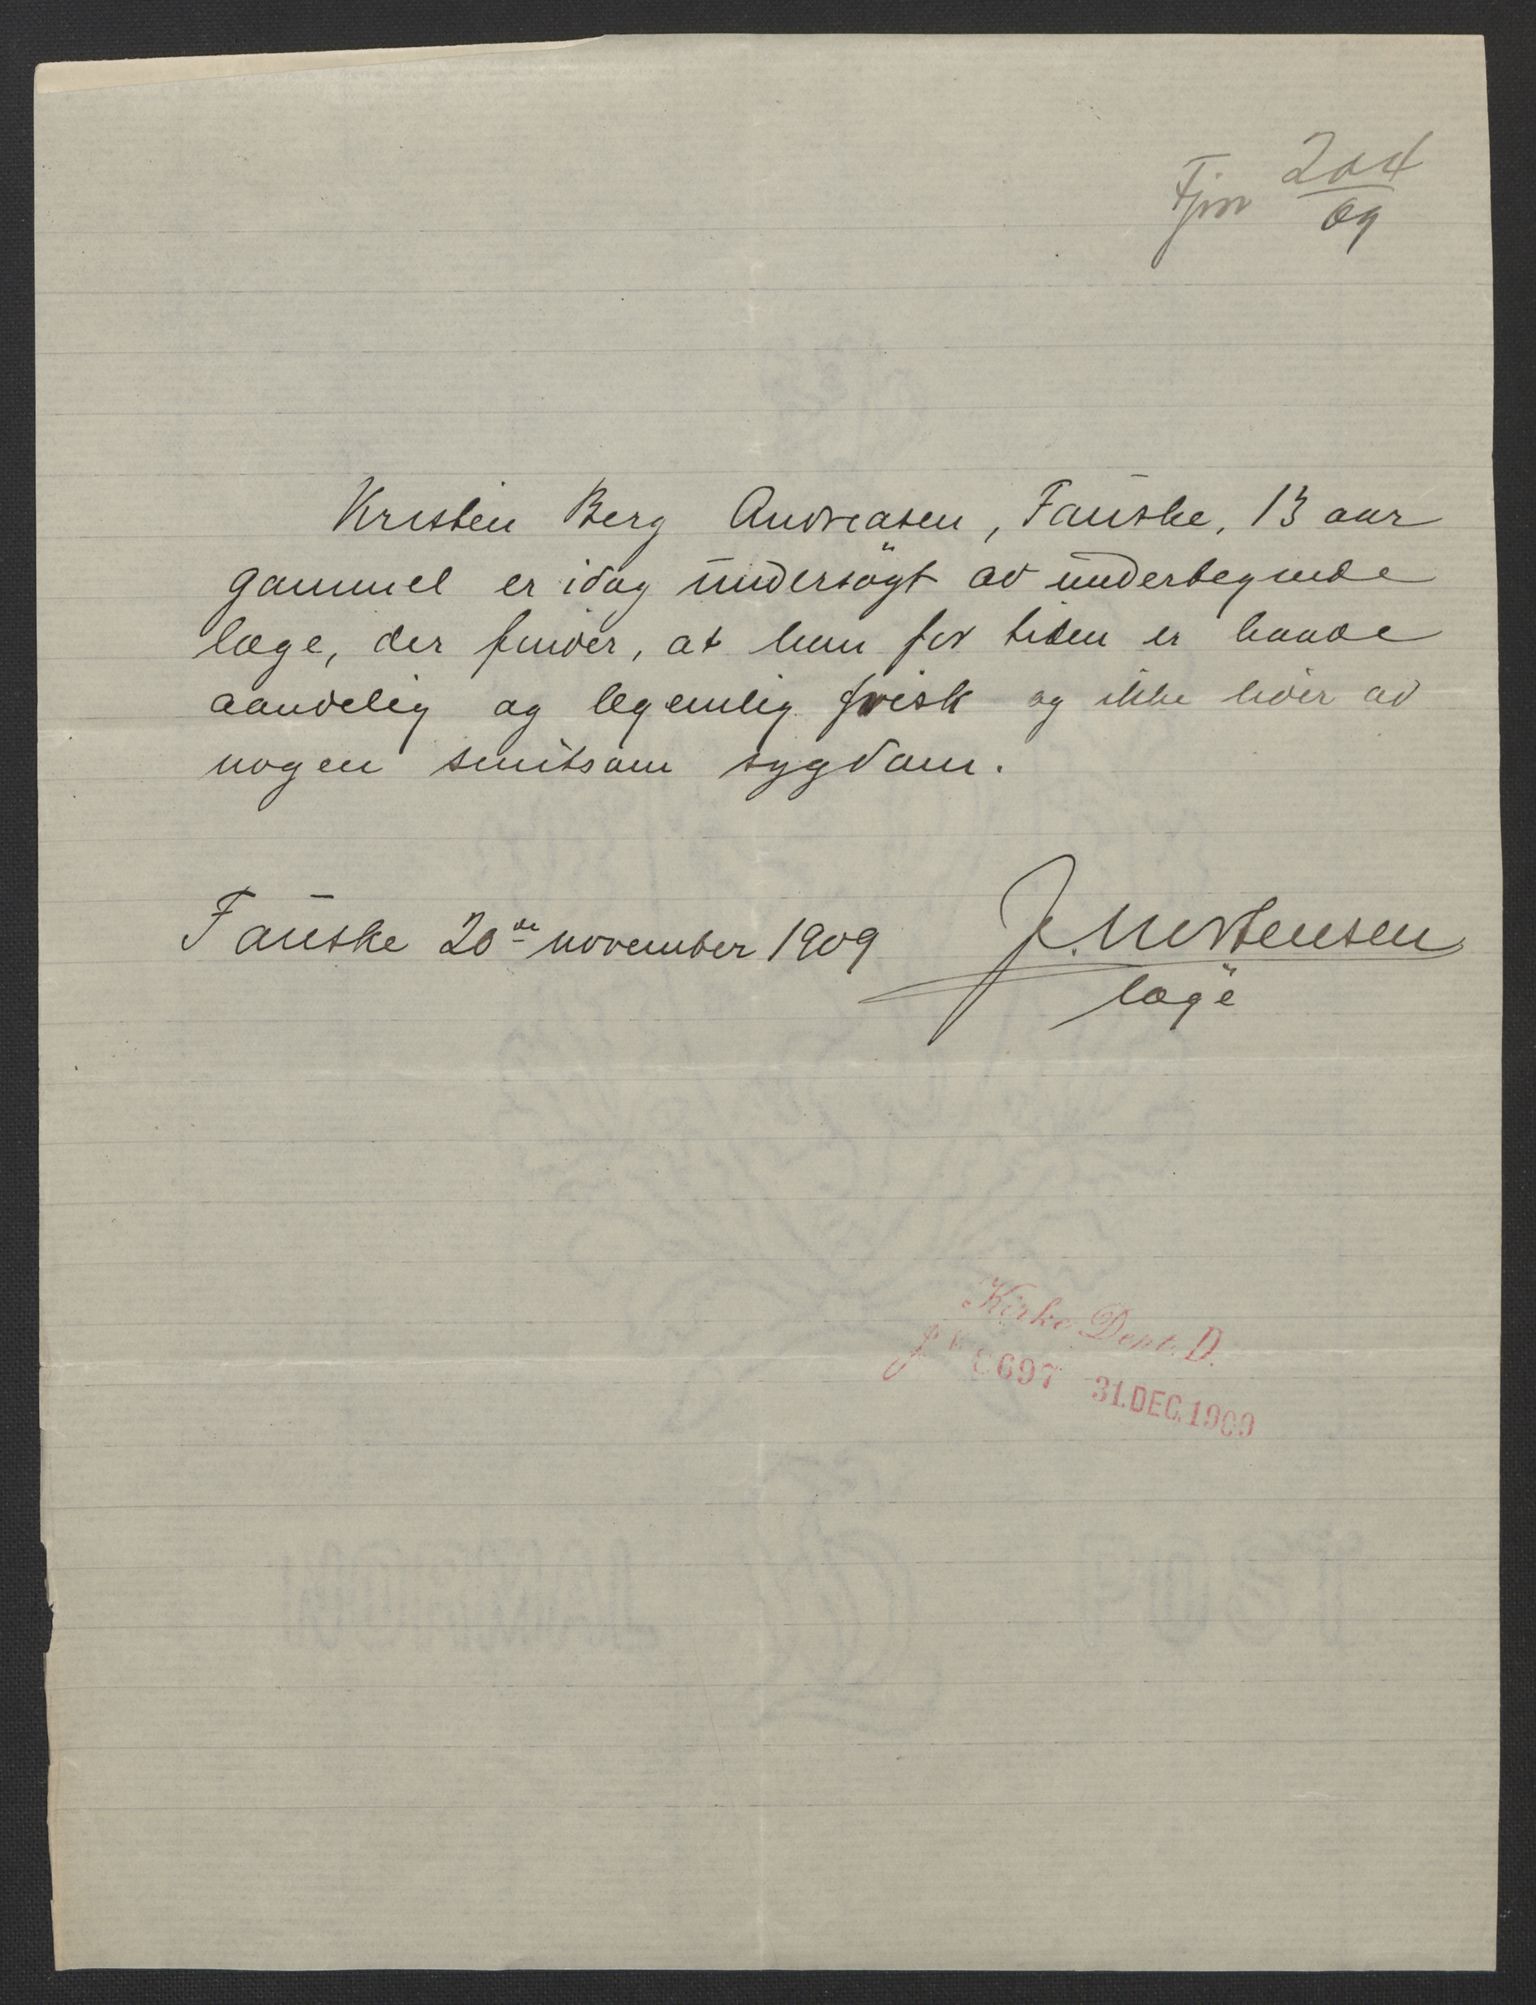 Fjm 204/09
Kristen Berg Andreasen, Fauske, 13 aar
gammel er idag undersøgt av undertegnede
læge, der finder, at hun for tiden er baade
aandelig og legemlig frisk og ikke lider av
nogen smitsom sygdom.
Fauske 20de november 1909
J. Mortensen
læge
Kirke Dept. D.
8697 31.DEC.1909